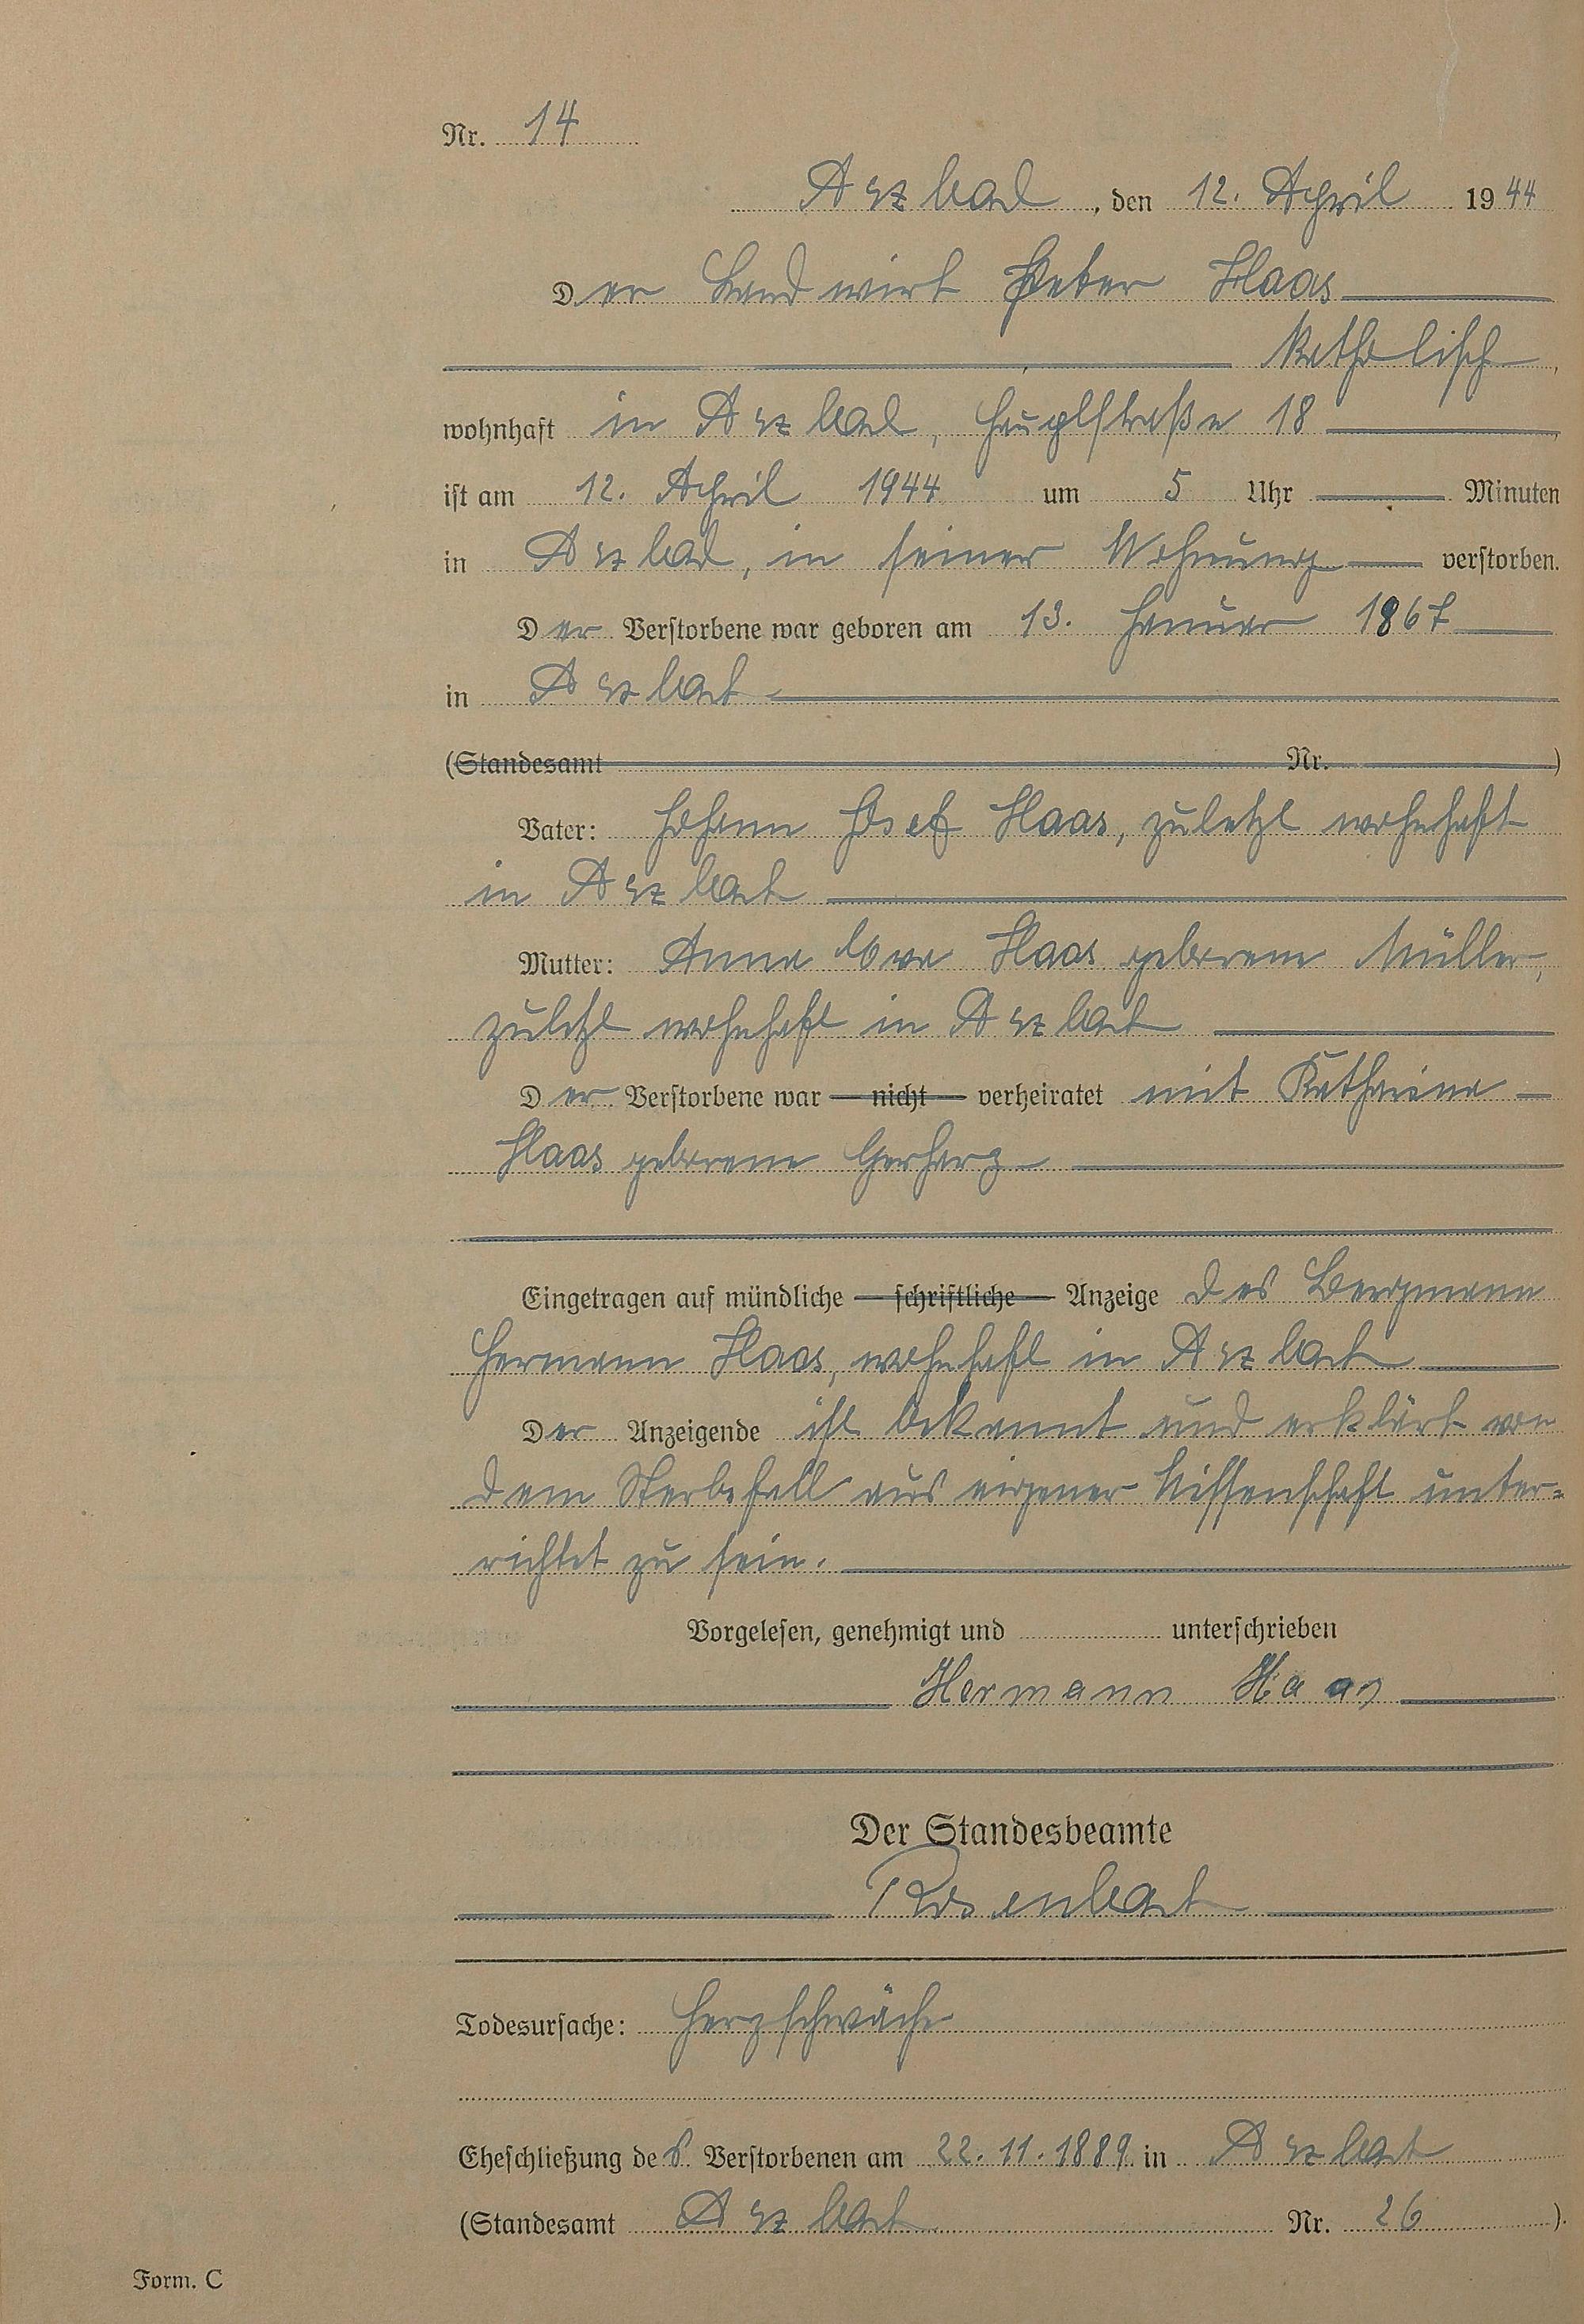 Nr. 14
Arzbach, den 12. April 1944
Der Landwirt Peter Haas
katholisch,
wohnhaft in Arzbach, Hauptstraße 18
ist am 12. April 1944 um 5 Uhr Minuten
in Arzbach, in seiner Wohnung verstorben.
Der Verstorbene war geboren am 13. Januar 1867
in Arzbach
(Standesamt Nr. )
Vater: Johann Josef Haas, zuletzt wohnhaft
in Arzbach
Mutter: Anna Eva Haas geborene Müller,
zuletzt wohnhaft in Arzbach
Der Verstorbene war — nicht — verheiratet mit Katharina
Haas geborene Gerharz
Eingetragen auf mündliche — schriftliche — Anzeige des Bergmann
Hermann Haas, wohnhaft in Arzbach
Der Anzeigende ist bekannt und erklärt von
dem Sterbefall aus eigener Wissenschaft unter-
richtet zu sein.
Vorgelesen, genehmigt und unterschrieben
Hermann Haas
Der Standesbeamte
Rosenbach
Todesursache: Herzschwäche
Eheschließung des Verstorbenen am 22.11.1889 in Arzbach
(Standesamt Arzbach Nr. 26 ).
Form. C